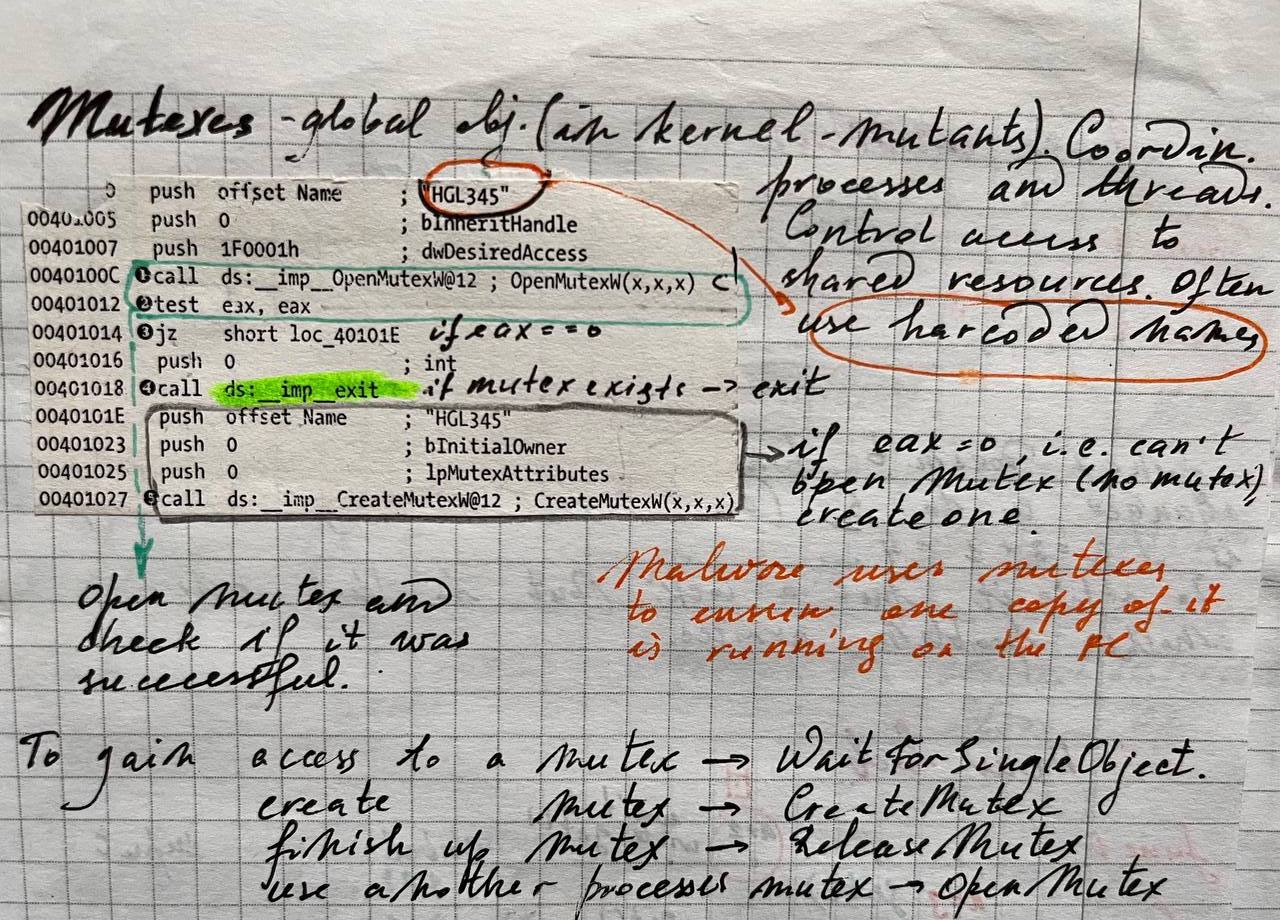 Mutexes - global obj. (in kernel - mutants). Coordin.
processes and threads.
Control access to
shared resources. Often
use harcoded names
0 push offset Name ; "HGL345"
00401005 push 0 ; bInheritHandle
00401007 push 1F0001h ; dwDesiredAccess
0040100C ❶call ds:__imp__OpenMutexW@12 ; OpenMutexW(x,x,x)
00401012 ❷test eax, eax
00401014 ❸jz short loc_40101E if eax==0
00401016 push 0 ; int
00401018 ❹call ds:__imp__exit if mutex exists → exit
0040101E push offset Name ; "HGL345"
00401023 push 0 ; bInitialOwner
00401025 push 0 ; lpMutexAttributes
00401027 ❺call ds:__imp__CreateMutexW@12 ; CreateMutexW(x,x,x)
→ if eax=0, i.e. can't
open Mutex (no mutex),
create one.
Malware uses mutexes
to ensure one copy of it
is running on the PC
Open mutex and
check if it was
successful.
To gain access to a mutex → WaitForSingleObject.
create mutex → CreateMutex
finish up mutex → ReleaseMutex
use another processes mutex → OpenMutex